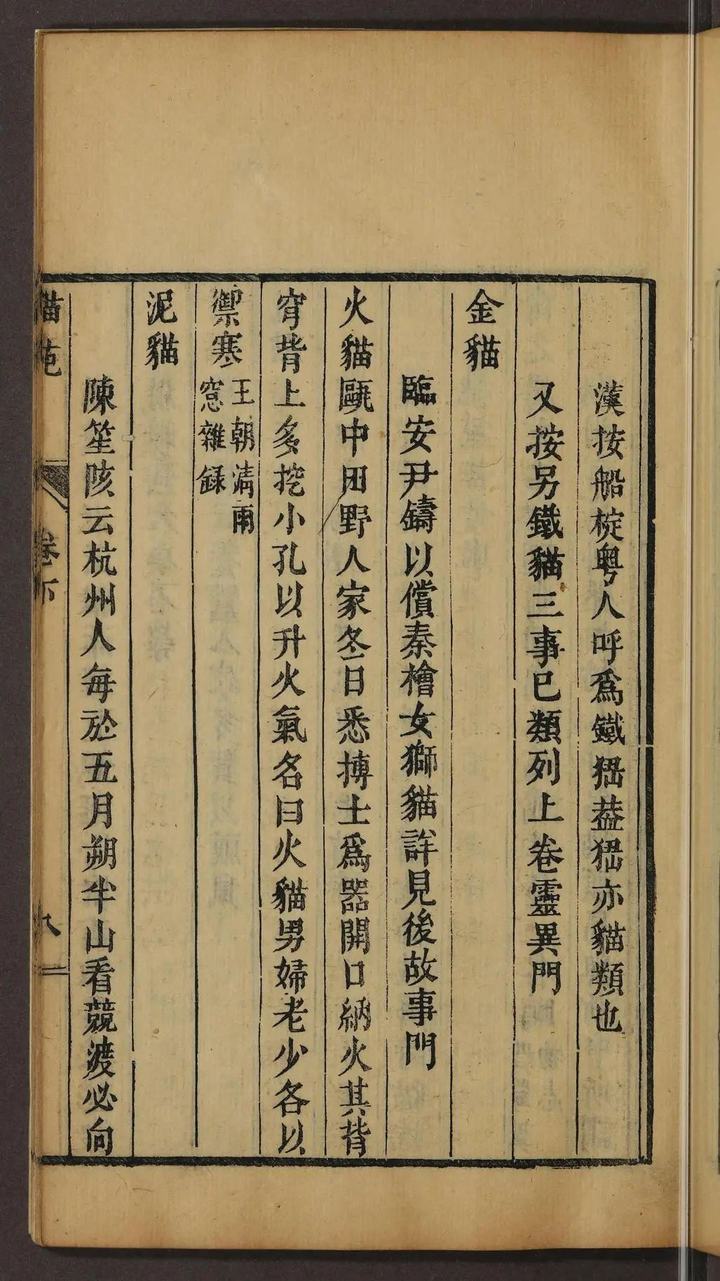 漢按船椗粵人呼爲鐵猫葢猫亦貓類也
又按另鐵貓三事已類列上卷靈異門
金貓
臨安尹鑄以償秦檜女獅貓詳見後故事門
火貓甌中田野人家冬日悉摶土爲器開口納火其背
穹背上多挖小孔以升火氣名曰火貓男婦老少各以
禦寒王朝清雨
窓雜録
泥貓
陳笙陔云杭州人每於五月朔半山看競渡必向
貓苑 卷下 九